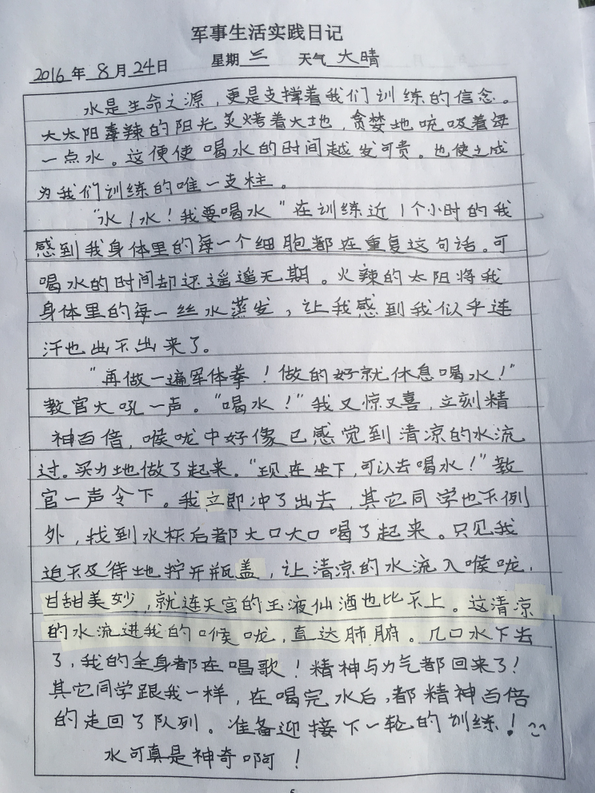 军事生活实践日记
2016年8月24日 星期三 天气大晴
水是生命之源，更是支撑着我们训练的信念。
大太阳毒辣的阳光炙烤着大地，贪婪地吮吸着每
一点水。这便使喝水的时间越发可贵。也使之成
为我们训练的唯一支柱。
“水！水！我要喝水”在训练近1个小时的我
感到我身体里的每一个细胞都在重复这句话。可
喝水的时间却还遥遥无期。火辣的太阳将我
身体里的每一丝水蒸发，让我感到我似乎连
汗也出不出来了。
“再做一遍军体拳！做的好就休息喝水！”
教官大吼一声。“喝水！”我又惊又喜，立刻精
神百倍，喉咙中好像已感觉到清凉的水流
过。买力地做了起来。“现在坐下，可以去喝水！”教
官一声令下。我立即冲了出去，其它同学也不例
外，找到水杯后都大口大口喝了起来。只见我
迫不及待地拧开瓶盖，让清凉的水流入喉咙，
甘甜美妙，就连天宫的玉液仙酒也比不上。这清凉
的水流进我的喉咙，直达肺腑。几口水下去
了，我的全身都在唱歌！精神与力气都回来了！
其它同学跟我一样，在喝完水后，都精神百倍
的走回了队列。准备迎接下一轮的训练！
水可真是神奇啊！